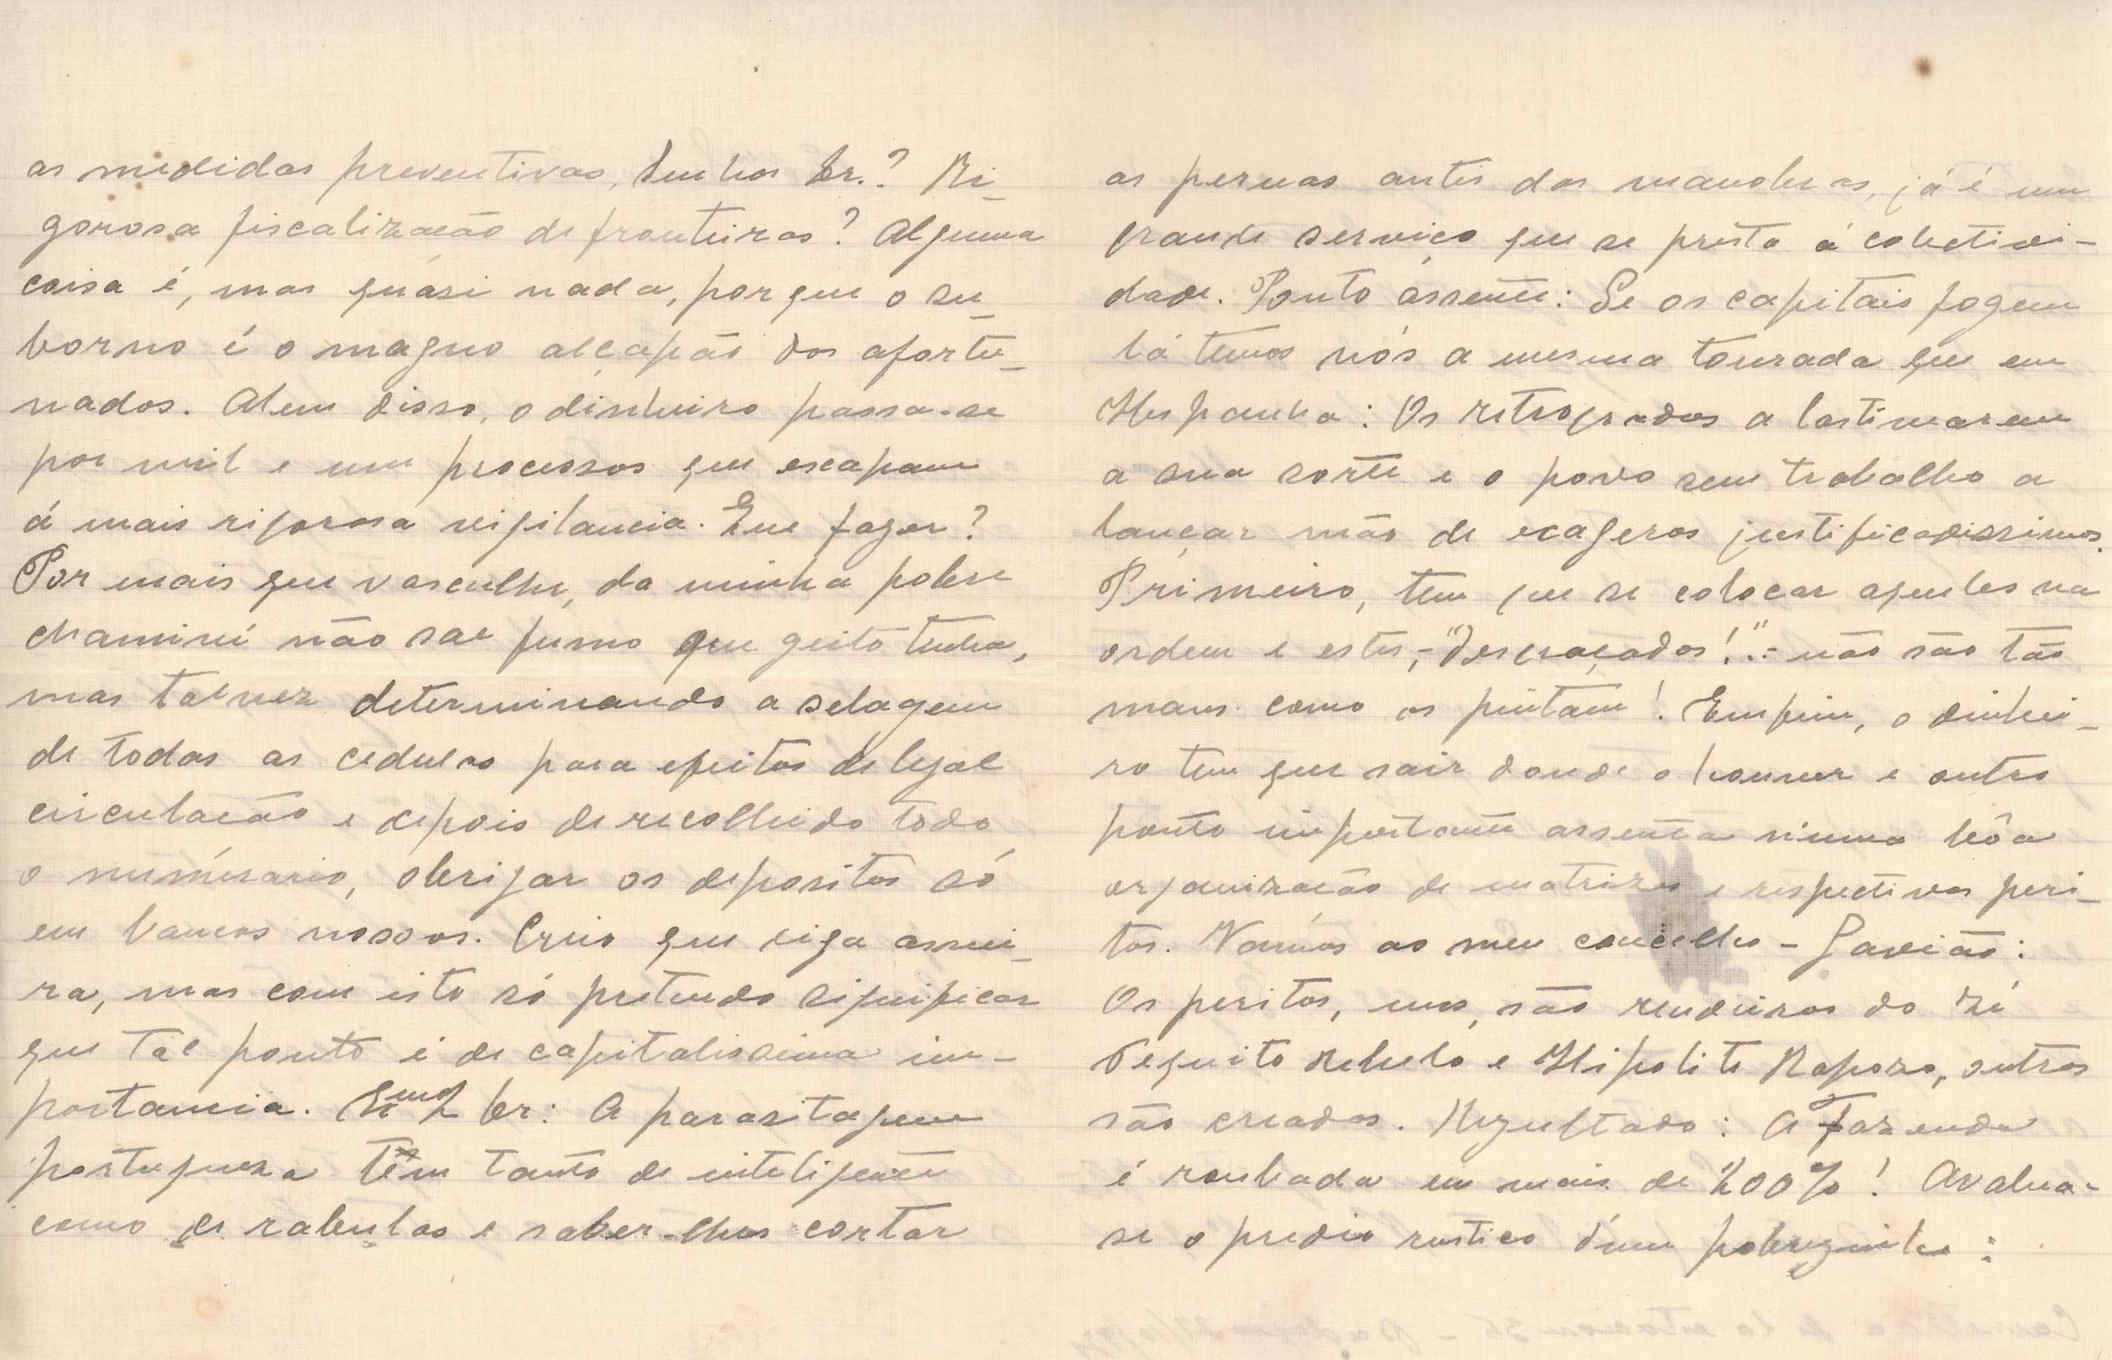 as medidas preventivas, Senhor Dr.? Ri-
gorosa fiscalização de fronteiras? Alguma
coisa é, mas quási nada, porque o su-
borno é o magno alçapão dos afortu-
nados. Alem disso, o dinheiro passa-se
por mil e um processos que escapam
á mais rigorosa vigilancia. Que fazer?
Por mais que vasculhe, da minha pobre
chaminé não sae fumo que geito tenha,
mas talvez determinando a selagem
de todas as cedulas para efeitos de legal
circulação e depois de recolhido todo
o numérario, obrigar os depositos só
em bancos nossos. Creio que diga asnei-
ra, mas com isto só pretendo significar
que tal ponto é de capitalissima im-
portancia. Exmo Dr: A parasitagem
portugueza têm tanto de inteligente
como de rabulas e saber-lhes cortar
as pernas antes das manobras, já é um
grande serviço que se presta á colectivi-
dade. Ponto assente: Se os capitais fogem
lá temos nós a mesma tourada que em
Hespanha: Os retrogrados a lastimarem
a sua sorte e o povo sem trabalho a
lançar mão de exageros justificadissimos.
Primeiro, tem que se colocar aqueles na
ordem e estes,-"Desgraçados!".- não são tão
maus como os pintam! Emfim, o dinhei-
ro tem que sair donde o houver e outro
ponto importante assenta n'uma bôa
organização de matrizes e respectivos peri-
tos. Vamos ao meu concelho - Gavião:
Os peritos, uns, são rendeiros do Zé
Pequito Rebelo e Hipolito Rapozo, outros
são creados. Rezultado: A Fazenda
é roubada em mais de 200%! Avalua-
se o predio rustico d'um pobrezinho: